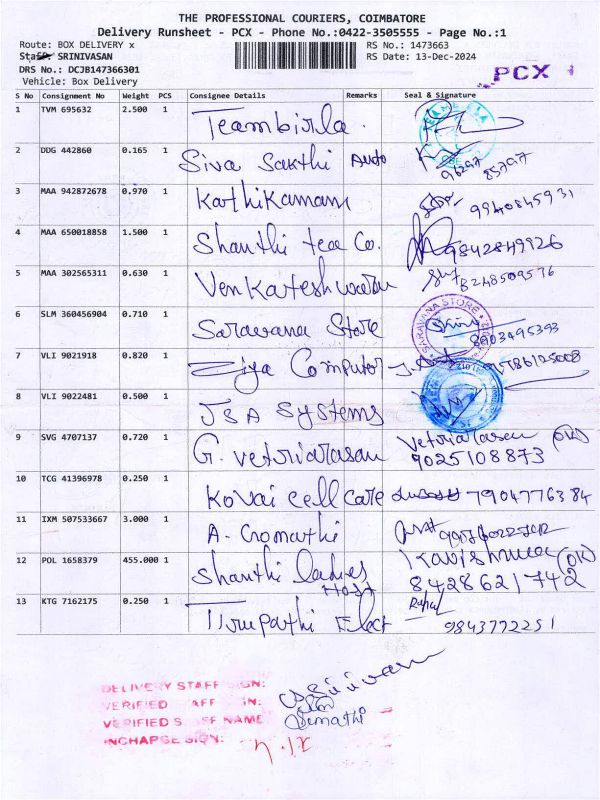 THE PROFESSIONAL COURIERS, COIMBATORE
Delivery Runsheet - PCX - Phone No.:0422-3505555 - Page No.:1
Route: BOX DELIVERY x
Staff: SRINIVASAN
DRS No.: DCJB147366301
Vehicle: Box Delivery
RS No.: 1473663
RS Date: 13-Dec-2024
PCX
S No Consignment No Weight PCS Consignee Details Remarks Seal & Signature
1 TVM 695632 2.500 1 Teambirla.
2 DDG 442860 0.165 1 Siva Sakthi Auto 96297 85797
3 MAA 942872678 0.970 1 Kathikamani 9940845931
4 MAA 650018858 1.500 1 Shanthi tea Co. 9842849926
5 MAA 302565311 0.630 1 Venkateshwara 8248509576
6 SLM 360456904 0.710 1 Saravana Store SARAVANA STORE 8903495393
7 VLI 9021918 0.820 1 Ziya Computer
8 VLI 9022481 0.500 1 JSA Systems
9 SVG 4707137 0.720 1 G. Vetriarasan Vetriarasan (OK)
9025108873
10 TCG 41396978 0.250 1 Kovai cell care 7904776384
11 IXM 507533667 3.000 1 A. Gomathi
12 POL 1658379 455.000 1 Shanthi Ladies Kavishnaa (OK)
Host 8428621742
13 KTG 7162175 0.250 1 Tirupathi Elect Rahul
9843772251
DELIVERY STAFF SIGN:
VERIFIED STAFF SIGN:
VERIFIED STAFF NAME: Gomathi
INCHARGE SIGN: